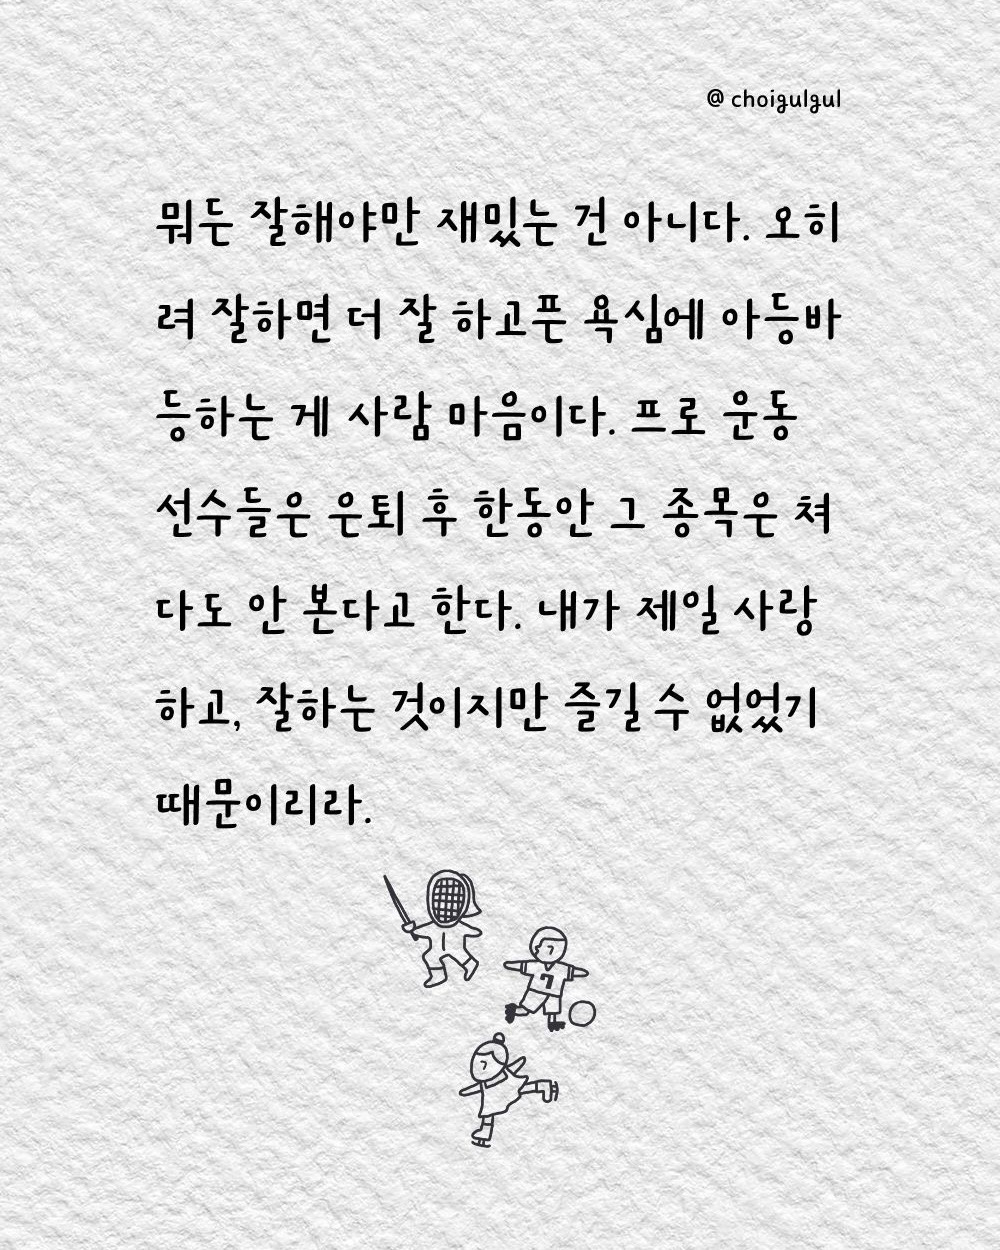 @ choigulgul
뭐든 잘해야만 재밌는 건 아니다. 오히
려 잘하면 더 잘 하고픈 욕심에 아등바
등하는 게 사람 마음이다. 프로 운동
선수들은 은퇴 후 한동안 그 종목은 쳐
다도 안 본다고 한다. 내가 제일 사랑
하고, 잘하는 것이지만 즐길 수 없었기
때문이리라.
7